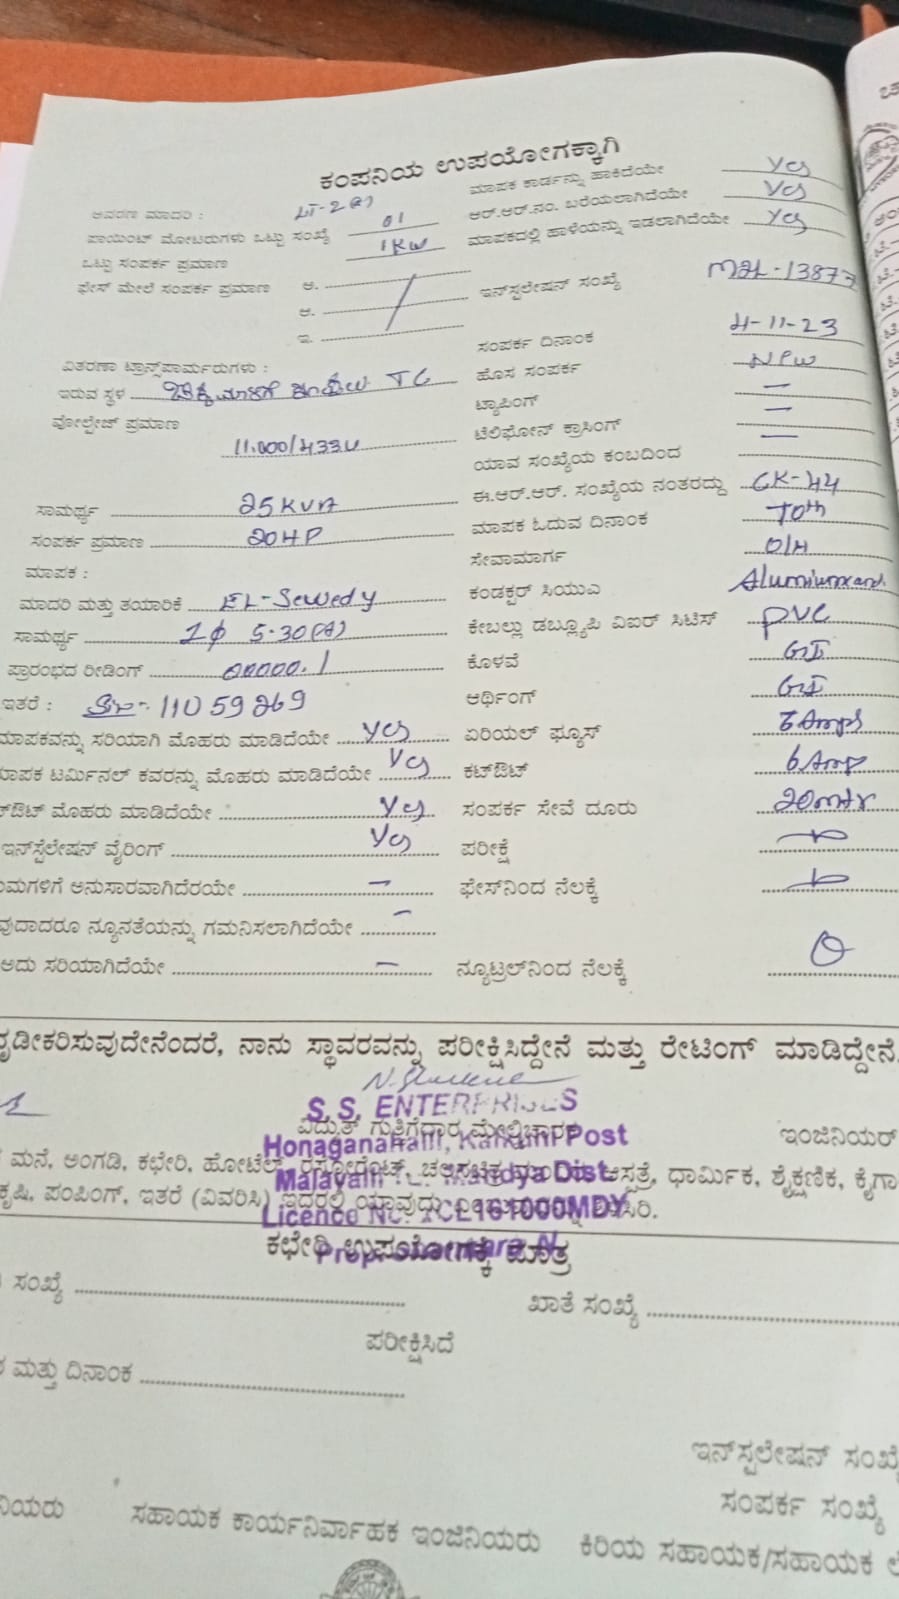 ಕಂಪನಿಯ ಉಪಯೋಗಕ್ಕಾಗಿ
ಆವರಣ ಮಾದರಿ : LT-2(a) ಮಾಪಕ ಕಾರ್ಡನ್ನು ಹಾಕಿದೆಯೇ Yes
ಪಾಯಿಂಟ್ ಮೋಟರುಗಳು ಒಟ್ಟು ಸಂಖ್ಯೆ 01 ಆರ್.ಆರ್.ನಂ. ಬರೆಯಲಾಗಿದೆಯೇ Yes
ಒಟ್ಟು ಸಂಪರ್ಕ ಪ್ರಮಾಣ 1KW ಮಾಪಕದಲ್ಲಿ ಹಾಳೆಯನ್ನು ಇಡಲಾಗಿದೆಯೇ Yes
ಫೇಸ್ ಮೇಲೆ ಸಂಪರ್ಕ ಪ್ರಮಾಣ ಅ. ಇನ್‌ಸ್ಟಲೇಷನ್ ಸಂಖ್ಯೆ
ಆ.
ಇ. ಸಂಪರ್ಕ ದಿನಾಂಕ 4-11-23
ವಿತರಣಾ ಟ್ರಾನ್ಸ್‌ಪಾರ್ಮರುಗಳು : ಹೊಸ ಸಂಪರ್ಕ
ಇರುವ ಸ್ಥಳ TC ಟ್ಯಾಪಿಂಗ್ –
ವೋಲ್ಟೇಜ್ ಪ್ರಮಾಣ 11.000/433V ಟೆಲಿಫೋನ್ ಕ್ರಾಸಿಂಗ್ –
ಯಾವ ಸಂಖ್ಯೆಯ ಕಂಬದಿಂದ –
ಸಾಮರ್ಥ್ಯ 25KVA ಈ.ಆರ್.ಆರ್. ಸಂಖ್ಯೆಯ ನಂತರದ್ದು CK-44
ಸಂಪರ್ಕ ಪ್ರಮಾಣ 20HP ಮಾಪಕ ಓದುವ ದಿನಾಂಕ 10th
ಮಾಪಕ : ಸೇವಾಮಾರ್ಗ O/H
ಮಾದರಿ ಮತ್ತು ತಯಾರಿಕೆ EL-Sewedy ಕಂಡಕ್ಟರ್ ಸಿಯುಎ
ಸಾಮರ್ಥ್ಯ 1ϕ 5-30(A) ಕೇಬಲ್ಲು ಡಬ್ಲ್ಯೂಪಿ ವಿಐರ್ ಸಿಟಿಸ್ PVC
ಪ್ರಾರಂಭದ ರೀಡಿಂಗ್ 00000.1 ಕೊಳವೆ GI
ಇತರೆ : 11059269 ಆರ್ಥಿಂಗ್ GI
ಮಾಪಕವನ್ನು ಸರಿಯಾಗಿ ಮೊಹರು ಮಾಡಿದೆಯೇ Yes ಏರಿಯಲ್ ಫ್ಯೂಸ್ 6 Amps
ಮಾಪಕ ಟರ್ಮಿನಲ್ ಕವರನ್ನು ಮೊಹರು ಮಾಡಿದೆಯೇ Yes ಕಟ್‌ಔಟ್ 6 Amp
ಮೊಹರು ಮಾಡಿದೆಯೇ Yes ಸಂಪರ್ಕ ಸೇವೆ ದೂರು 20mtr
ಇನ್‌ಸ್ಟೆಲೇಷನ್ ವೈರಿಂಗ್ Yes ಪರೀಕ್ಷೆ
ಅನುಸಾರವಾಗಿದೆರಯೇ – ಫೇಸ್‌ನಿಂದ ನೆಲಕ್ಕೆ
ನ್ಯೂನತೆಯನ್ನು ಗಮನಿಸಲಾಗಿದೆಯೇ –
ಅದು ಸರಿಯಾಗಿದೆಯೇ – ನ್ಯೂಟ್ರಲ್‌ನಿಂದ ನೆಲಕ್ಕೆ
ನಾನು ಸ್ಥಾವರವನ್ನು ಪರೀಕ್ಷಿಸಿದ್ದೇನೆ ಮತ್ತು ರೇಟಿಂಗ್ ಮಾಡಿದ್ದೇನೆ.
S. S. ENTERPRISES
ವಿದ್ಯುತ್ ಗುತ್ತಿಗೆದಾರ ಮೇಲ್ವಿಚಾರಕ ಇಂಜಿನಿಯರ್
Honaganahalli, Post
ಮನೆ, ಅಂಗಡಿ, ಕಛೇರಿ, ಹೋಟೆಲ್, ಧಾರ್ಮಿಕ, ಶೈಕ್ಷಣಿಕ,
Mandya Dist.
ಕೃಷಿ, ಪಂಪಿಂಗ್, ಇತರೆ (ವಿವರಿಸಿ) ಇದರಲ್ಲಿ ಯಾವುದು
Licence No.
ಕಛೇರಿ ಉಪಯೋಗಕ್ಕೆ ಮಾತ್ರ
ಸಂಖ್ಯೆ ಖಾತೆ ಸಂಖ್ಯೆ
ಪರೀಕ್ಷಿಸಿದೆ
ಮತ್ತು ದಿನಾಂಕ
ಇನ್‌ಸ್ಟಲೇಷನ್ ಸಂಖ್ಯೆ
ಸಂಪರ್ಕ ಸಂಖ್ಯೆ
ಸಹಾಯಕ ಕಾರ್ಯನಿರ್ವಾಹಕ ಇಂಜಿನಿಯರು ಕಿರಿಯ ಸಹಾಯಕ/ಸಹಾಯಕ